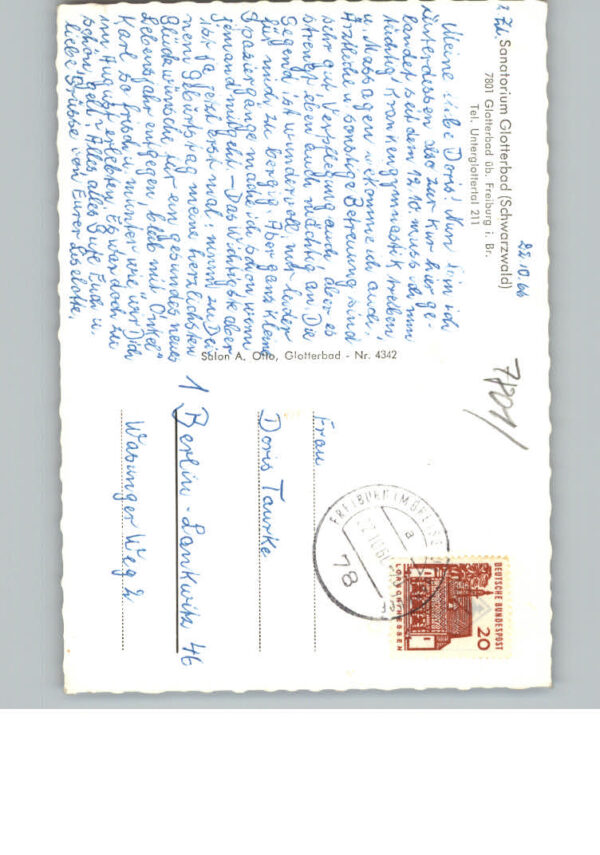 z. Zt. Sanatorium Glotterbad (Schwarzwald)
7801 Glotterbad üb. Freiburg i. Br.
Tel. Unterglottertal 211
22.10.66
Meine liebe Doris! Nun bin ich
unterdessen also zur Kur hier ge-
landet, seit dem 12.10. muss ich nun
tüchtig Krankengymnastik treiben,
u. Massagen bekomme ich auch.
Ärztliche u. sonstige Betreuung sind
sehr gut, Verpflegung auch, aber es
strengt eben auch tüchtig an. Die
Gegend ist wundervoll, nur leider
für mich zu bergig. Aber ganz kleine
Spaziergänge mache ich schon, wenn
jemand mitgeht. – Das Wichtigste aber
ist ja jetzt erst mal: nimm zu Dei-
nem Geburtstag meine herzlichsten
Glückwünsche für ein gesundes neues
Lebensjahr entgegen, bleib mit "Onkel"
Karl so frisch u. munter wie wir Dich
im August erlebten. Es war doch zu
schön, gell? Alles, alles Gute Euch u.
liebe Grüsse von Eurer Liselotte.
Salon A. Otto, Glotterbad - Nr. 4342
7801/
Frau
Doris Taurke
1 Berlin-Lankwitz 46
Wasunger Weg 2
FREIBURG IM BREISGAU
a
78
DEUTSCHE BUNDESPOST
20
LORSCH/HESSEN